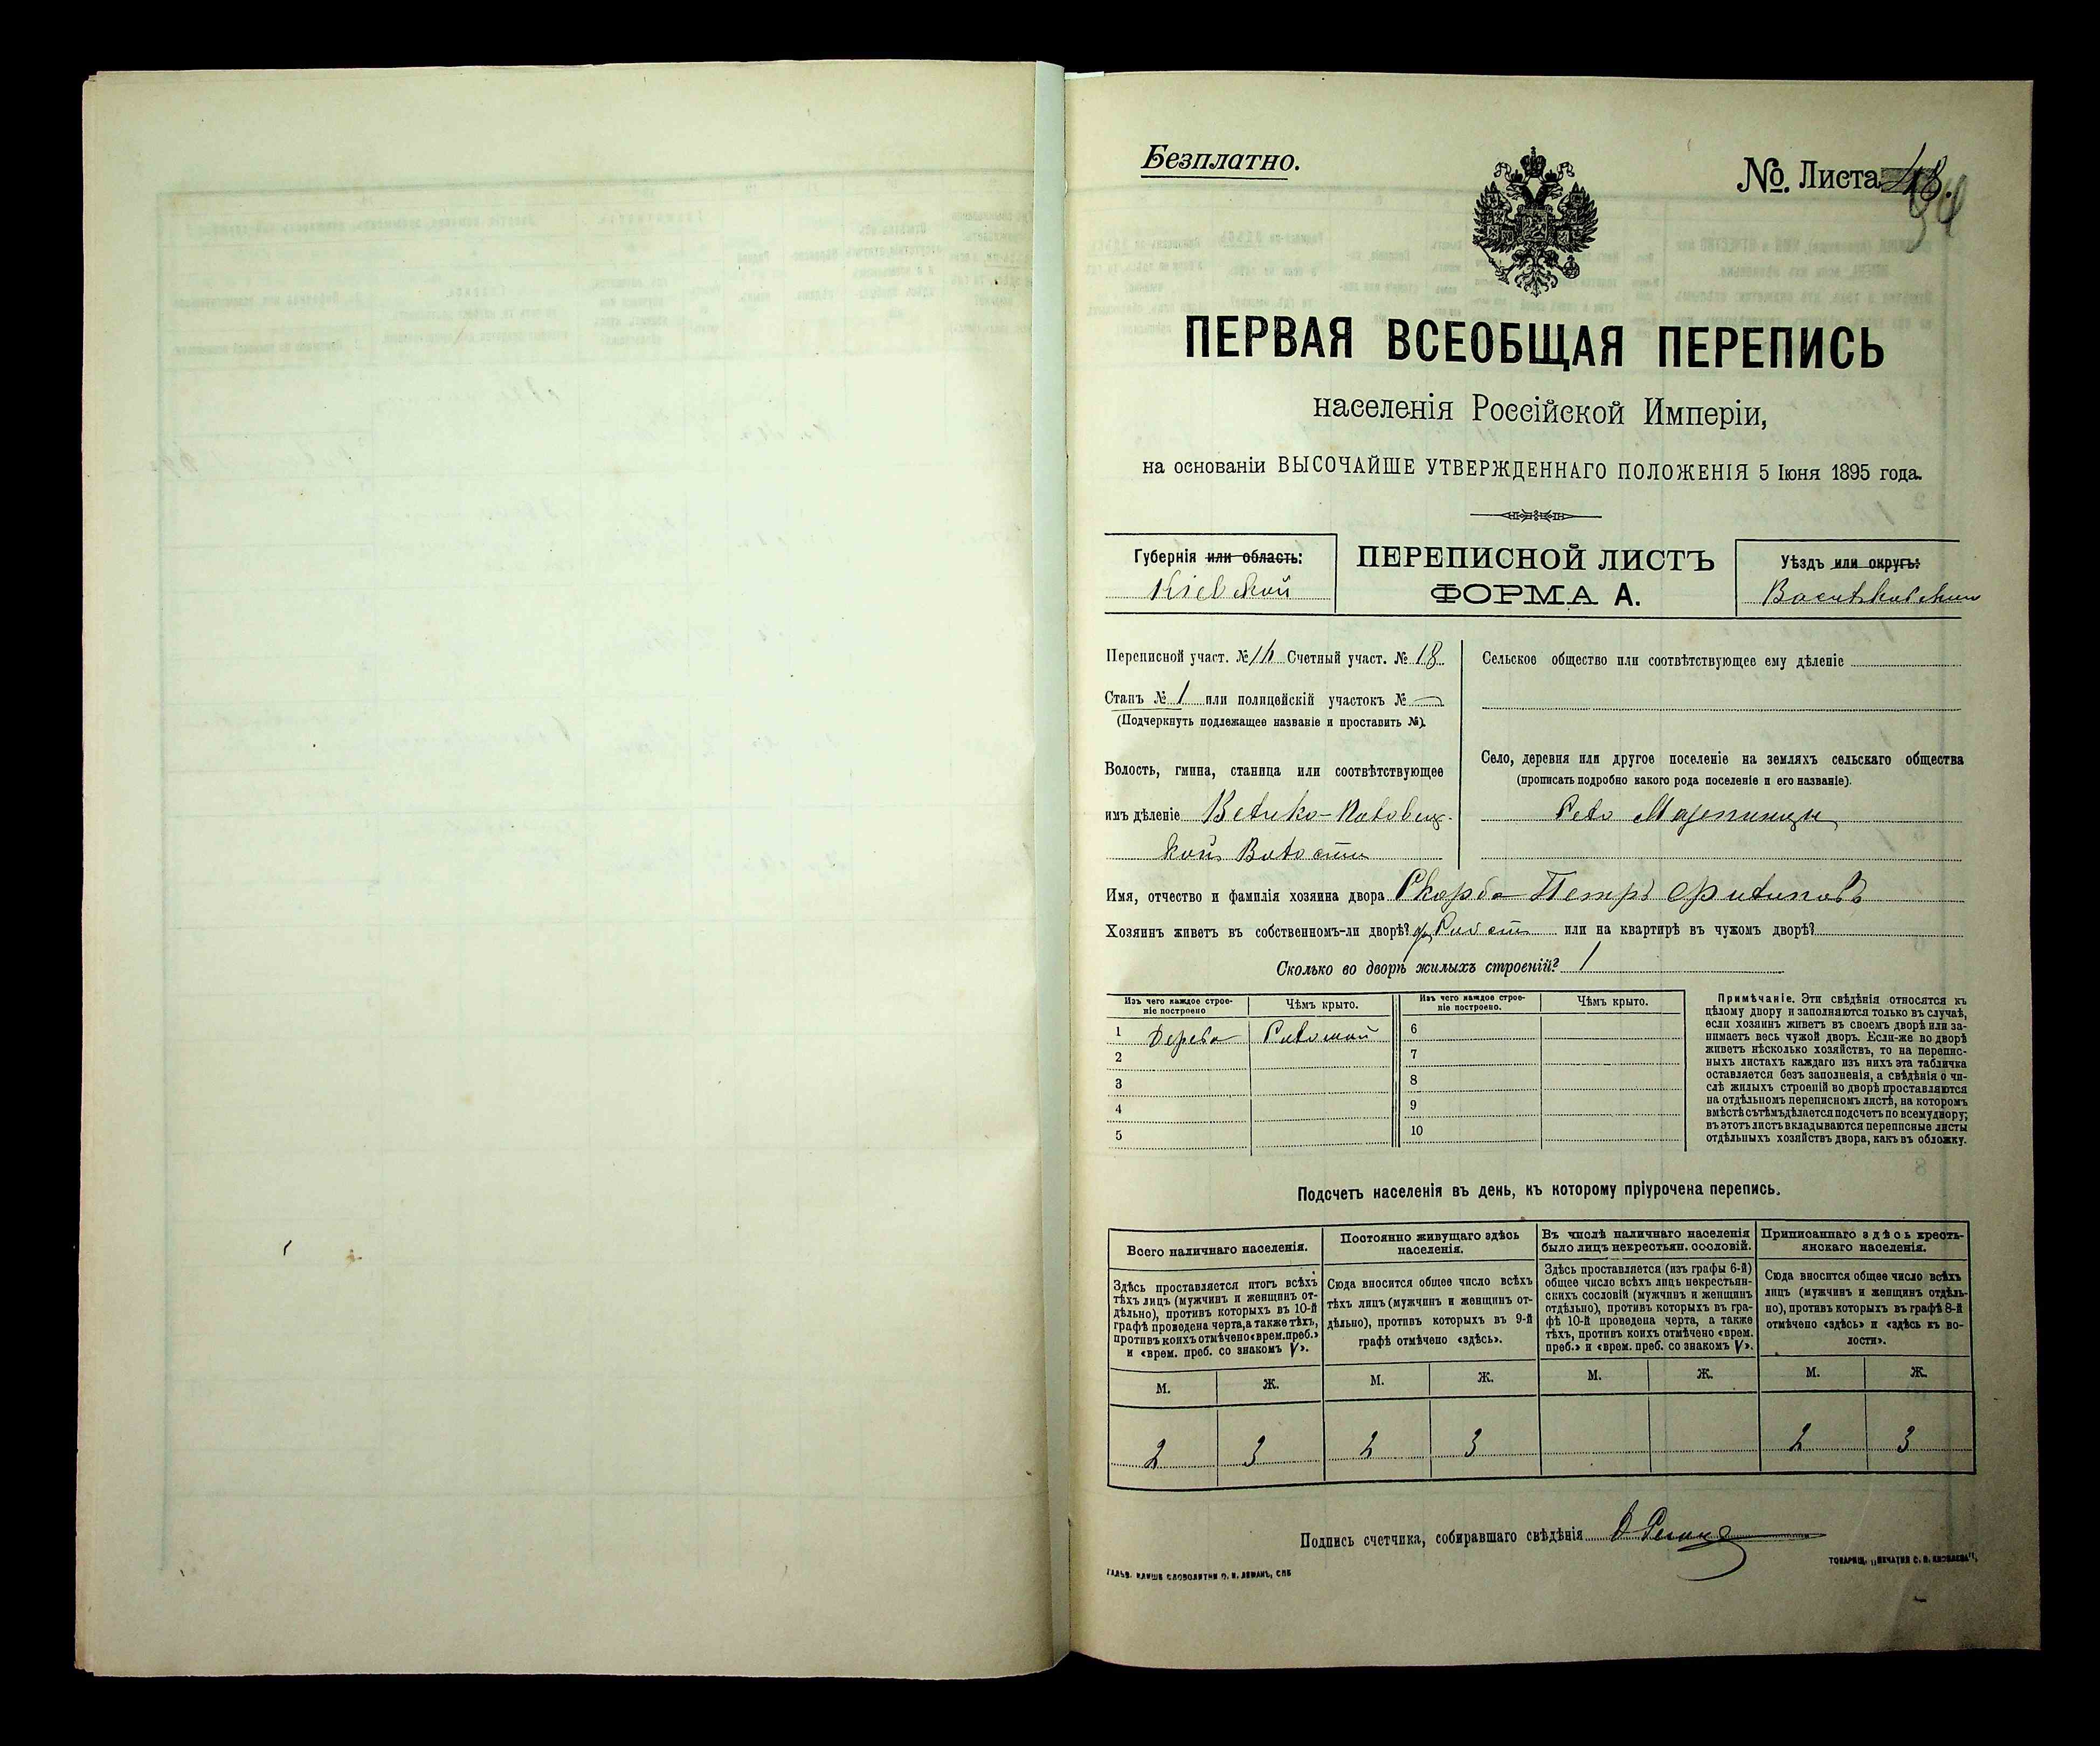 Безплатно.
№. Листа 48.
ПЕРВАЯ ВСЕОБЩАЯ ПЕРЕПИСЬ
населенія Россійской Имперіи,
на основаніи ВЫСОЧАЙШЕ УТВЕРЖДЕННАГО ПОЛОЖЕНІЯ 5 Іюня 1895 года.
Губернія или область:
Кіевской
ПЕРЕПИСНОЙ ЛИСТЪ
ФОРМА А.
Уѣздъ или округъ:
Васильковскій
Переписной участ. № Счетный участ. № 18
Станъ № 1 или полицейскій участокъ № —
(Подчеркнуть подлежащее названіе и проставить №).
Волость, гмина, станица или соотвѣтствующее
имъ дѣленіе Велико-Половец-
кой Волости
Сельское общество или соотвѣтствующее ему дѣленіе
Село, деревня или другое поселеніе на земляхъ сельскаго общества
(прописать подробно какого рода поселеніе и его названіе).
Село
Имя, отчество и фамилія хозяина двора Скорба Петръ Филиповъ
Хозяинъ живетъ въ собственномъ-ли дворѣ? или на квартирѣ въ чужомъ дворѣ?
Сколько во дворѣ жилыхъ строеній? 1
Изъ чего каждое строе-
ніе построено
Чѣмъ крыто.
Изъ чего каждое строе-
ніе построено.
Чѣмъ крыто.
1 Дерева Соломой
2
3
4
5
6
7
8
9
10
Примѣчаніе. Эти свѣдѣнія относятся къ
цѣлому двору и заполняются только въ случаѣ,
если хозяинъ живетъ въ своемъ дворѣ или за-
нимаетъ весь чужой дворъ. Если-же во дворѣ
живетъ нѣсколько хозяйствъ, то на перепис-
ныхъ листахъ каждаго изъ нихъ эта табличка
оставляется безъ заполненія, а свѣдѣнія о чи-
слѣ жилыхъ строеній во дворѣ проставляются
на отдѣльномъ переписномъ листѣ, на которомъ
вмѣстѣ съ тѣмъ дѣлается подсчетъ по всему двору;
въ этотъ листъ вкладываются переписные листы
отдѣльныхъ хозяйствъ двора, какъ въ обложку.
Подсчетъ населенія въ день, къ которому пріурочена перепись.
Всего наличнаго населенія.
Здѣсь проставляется итогъ всѣхъ
тѣхъ лицъ (мужчинъ и женщинъ от-
дѣльно), противъ которыхъ въ 10-й
графѣ проведена черта, а также тѣхъ,
противъ коихъ отмѣчено «врем. преб.»
и «врем. преб. со знакомъ V».
Постоянно живущаго здѣсь
населенія.
Сюда вносится общее число всѣхъ
тѣхъ лицъ (мужчинъ и женщинъ от-
дѣльно), противъ которыхъ въ 9-й
графѣ отмѣчено «здѣсь».
Въ числѣ наличнаго населенія
было лицъ некрестьян. сословій.
Здѣсь проставляется (изъ графы 6-й)
общее число всѣхъ лицъ некрестьян-
скихъ сословій (мужчинъ и женщинъ
отдѣльно), противъ которыхъ въ гра-
фѣ 10-й проведена черта, а также
тѣхъ, противъ коихъ отмѣчено «врем.
преб.» и «врем. преб. со знакомъ V».
Приписаннаго здѣсь кресть-
янскаго населенія.
Сюда вносится общее число всѣхъ
лицъ (мужчинъ и женщинъ отдѣль-
но), противъ которыхъ въ графѣ 8-й
отмѣчено «здѣсь» и «здѣсь къ во-
лости».
М. Ж. М. Ж. М. Ж. М. Ж.
2 3 2 3 2 3
Подпись счетчика, собиравшаго свѣдѣнія
ГАЛЬВ. КЛИШЕ СЛОВОЛИТНИ О. И. ЛЕМАНЪ, СПБ
ТОВАРИЩ. „ПЕЧАТНЯ С. П. ЯКОВЛЕВА“.